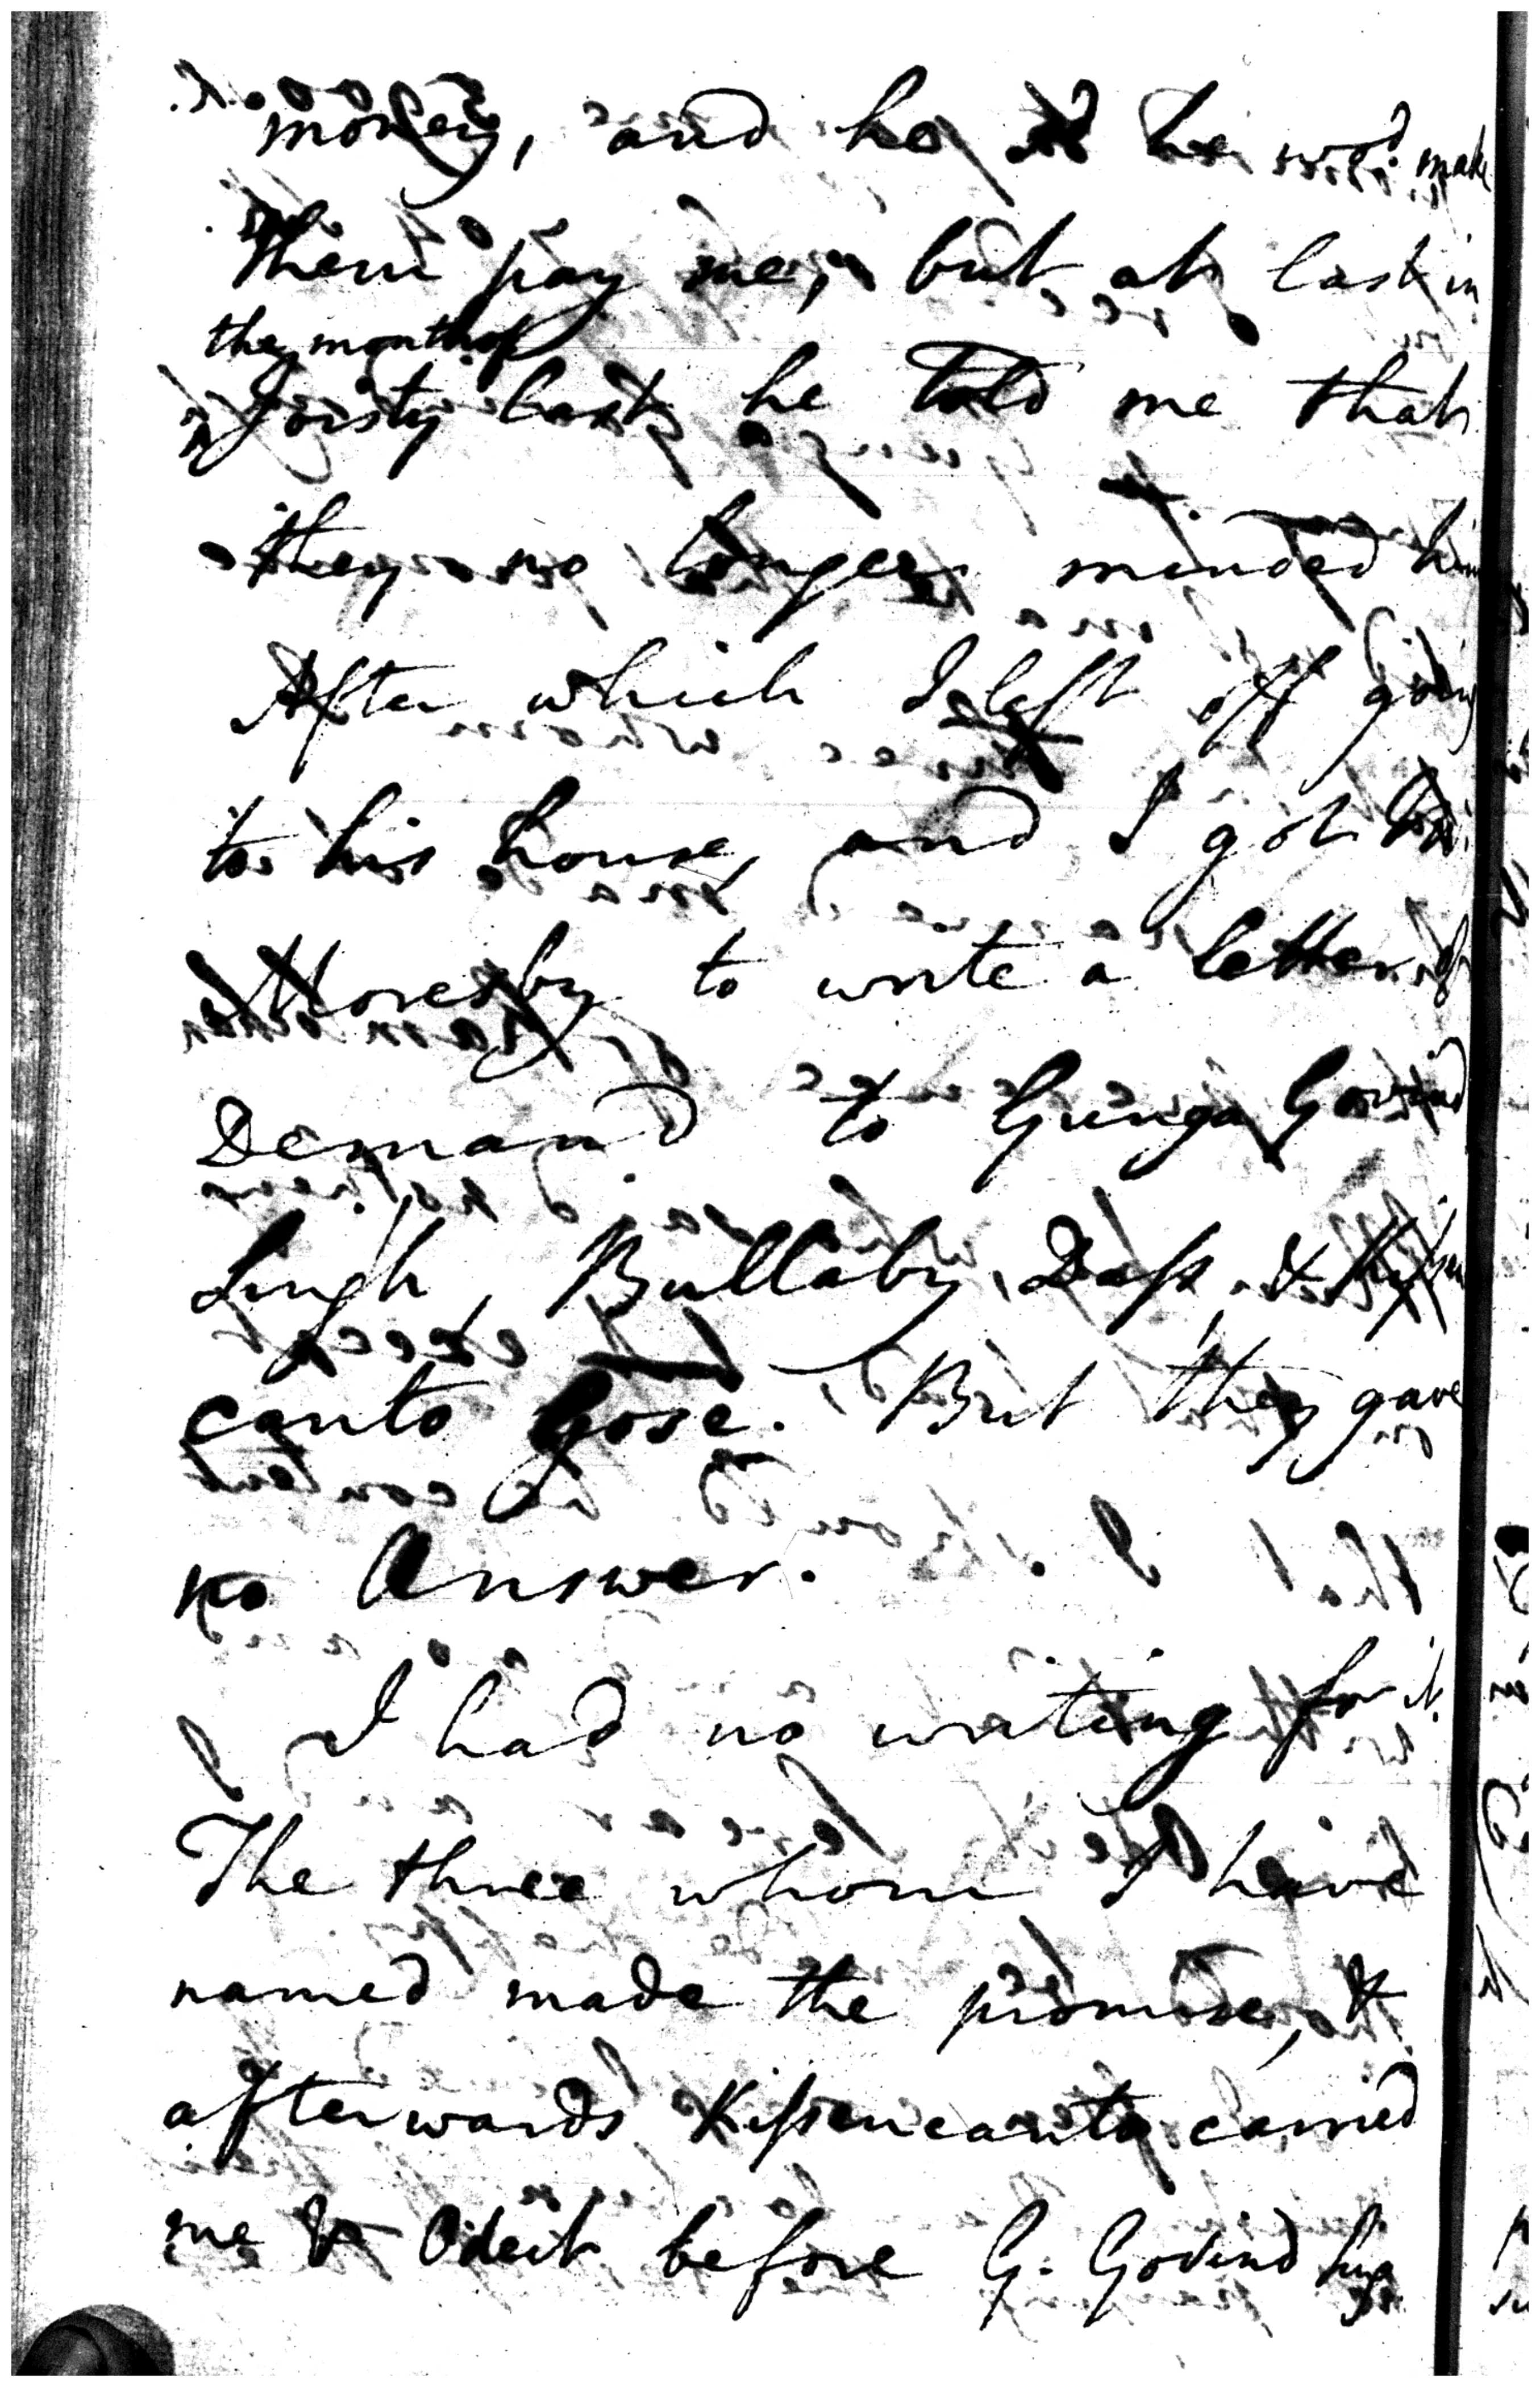 money, and he sd he wod. make
them pay me, but at last in
the month of
Joisty last he told me that
they no longer minded him
After which I left off going
to his house, and I got Mr.
Moresby to write a letter of
Demand to Gunga Govind
Singh, Bullaby Dass & Kissen
canto Gose. But they gave
no Answer.
I had no writing for it.
The three whom I have
named made the promise, &
afterwards Kissencanto carried
me & Odeit before G. Govind Sing